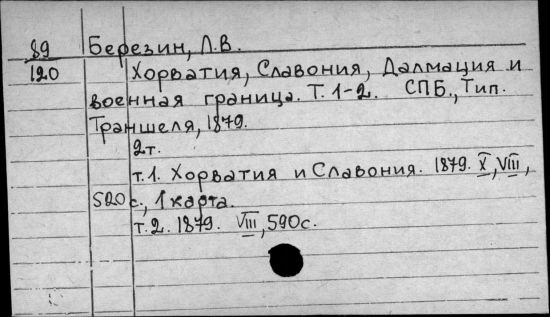 89 Березин, Л.В.
120 Хорватия, Славония, Далмация и
военная граница. Т. 1-2. СПБ., Тип.
Траншеля, 1879.
2т.
т.1. Хорватия и Славония. 1879. X, VIII,
520 с., 1 карта.
т.2. 1879. VIII, 590с.